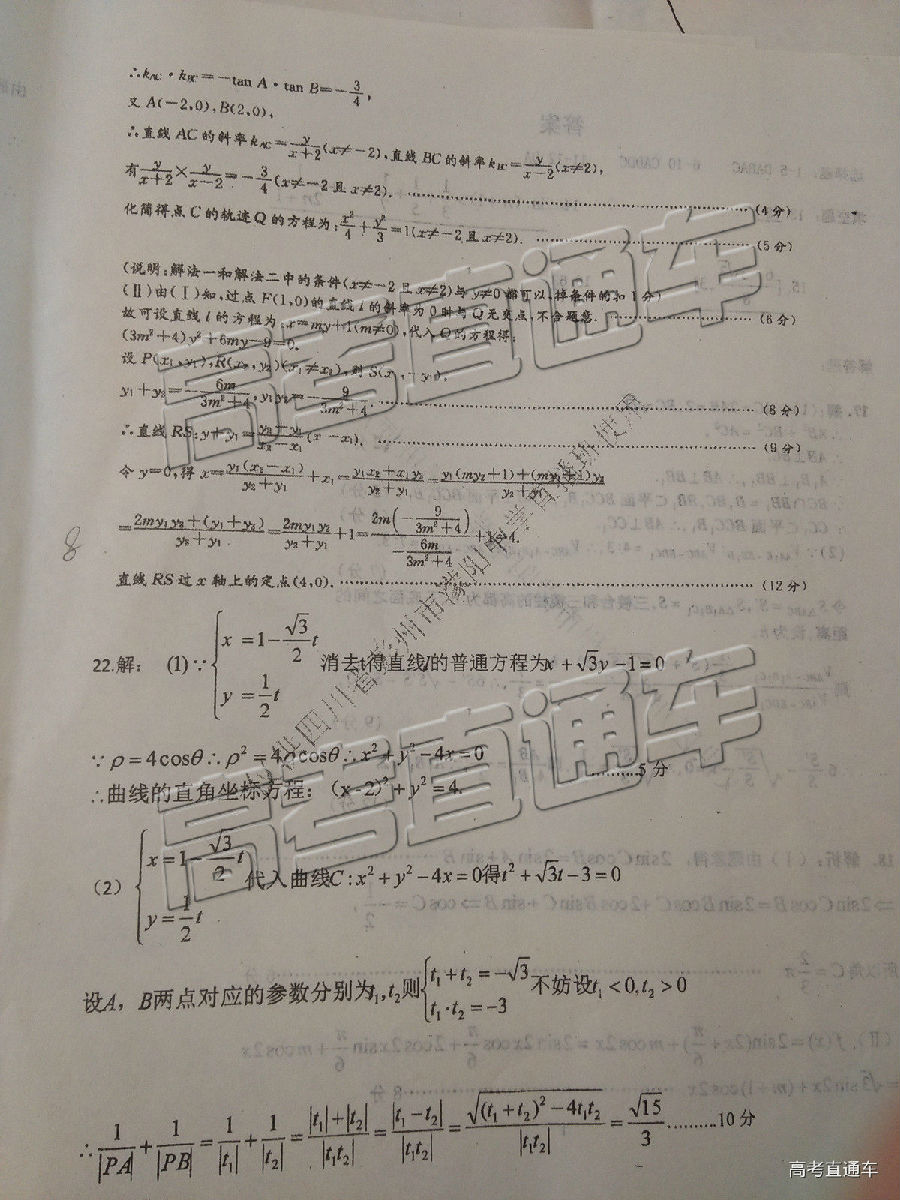 ∴k_AC·k_BC=-tan A·tan B=-3/4,
又 A(-2,0),B(2,0),
∴直线 AC 的斜率k_AC=y/(x+2)(x≠-2),直线 BC 的斜率k_BC=y/(x-2)(x≠2),
有y/(x+2)×y/(x-2)=-3/4(x≠-2且x≠2). (4分)
化简得点 C 的轨迹 Q 的方程为:x²/4+y²/3=1(x≠-2且x≠2). (5分)
(说明:解法一和解法二中的条件(x≠-2且x≠2)与y≠0都可以,掉条件的扣1分)
(Ⅱ)由(Ⅰ)知,过点 F(1,0)的直线 l 的斜率为 0 时与 Q 无交点,不合题意. (6分)
故可设直线 l 的方程为:x=my+1(m≠0),代入 Q 的方程得:
(3m²+4)y²+6my-9=0.
设 P(x₁,y₁),R(x₂,y₂)(x₁≠x₂),则S(x₁,-y₁),
y₁+y₂=-6m/(3m²+4),y₁y₂=-9/(3m²+4). (8分)
∴直线 RS:y+y₁=(x-x₁), (9分)
令 y=0,得 x=y₁(x₂-x₁)/(y₂+y₁)+x₁=(y₁x₂+x₁y₂)/(y₂+y₁)=(y₁(my₂+1)+(my₁+1)y₂)/(y₂+y₁)
=(2my₁y₂+(y₁+y₂))/(y₂+y₁)=2my₁y₂/(y₂+y₁)+1=2m(-9/(3m²+4))/(-6m/(3m²+4))+1=4.
8
直线 RS 过 x 轴上的定点(4,0). (12分)
22.解: (1)∵{x=1-√3/2 t
y=1/2 t
消去t得直线l的普通方程为x+√3y-1=0
∵ρ=4cosθ∴ρ²=4ρcosθ∴x²+y²-4x=0
..........5 分
∴曲线的直角坐标方程:(x-2)²+y²=4.
(2){x=1-√3/2 t
y=1/2 t
代入曲线C:x²+y²-4x=0得t²+√3t-3=0
设A,B两点对应的参数分别为t₁,t₂则{t₁+t₂=-√3
t₁·t₂=-3
不妨设t₁<0,t₂>0
∴1/|PA|+1/|PB|=1/|t₁|+1/|t₂|=(|t₁|+|t₂|)/|t₁t₂|=|t₁-t₂|/|t₁t₂|=√((t₁+t₂)²-4t₁t₂)/|t₁t₂|=√15/3..........10 分
高考直通车
高考直通车
高考直通车